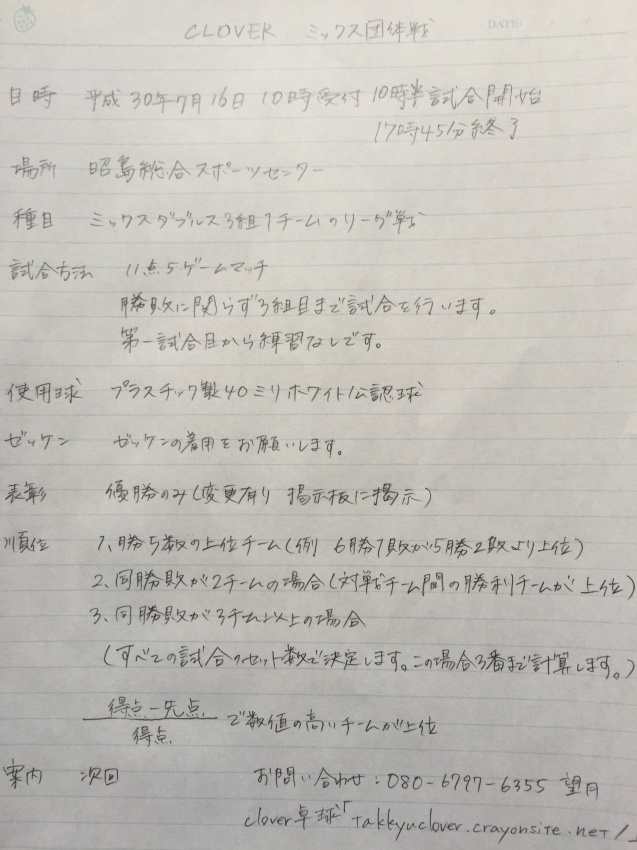 DATE:
CLOVER ミックス団体戦
日時 平成30年7月16日 10時受付 10時半試合開始
17時45分終了
場所 昭島総合スポーツセンター
種目 ミックスダブルス3組1チームのリーグ戦
試合方法 11点5ゲームマッチ
勝敗に関らず3組目まで試合を行います。
第一試合目から練習なしです。
使用球 プラスチック製40ミリホワイト公認球
ゼッケン ゼッケンの着用をお願いします。
表彰 優勝のみ(変更有り 掲示板に掲示)
順位 1、勝ち数の上位チーム(例 6勝1敗が5勝2敗より上位)
2、同勝敗が2チームの場合(対戦チーム間の勝利チームが上位)
3、同勝敗が3チーム以上の場合
(すべての試合のセット数で決定します。この場合3番まで計算します。)
得点-失点
得点
で数値の高いチームが上位
案内 次回 お問い合わせ:080-6797-6355 望月
clover卓球「takkyuclover.crayonsite.net/